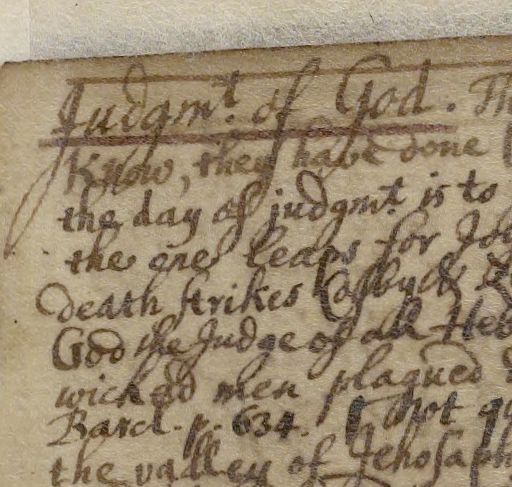 Judgmt. of God. Th
Know, they have done
the day of judgmt. is to
the one leaps for Joy
death strikes
God the Judge of all Heb
wicked men plagued
Barcl. p. 634. not
the valley of Jehosaph